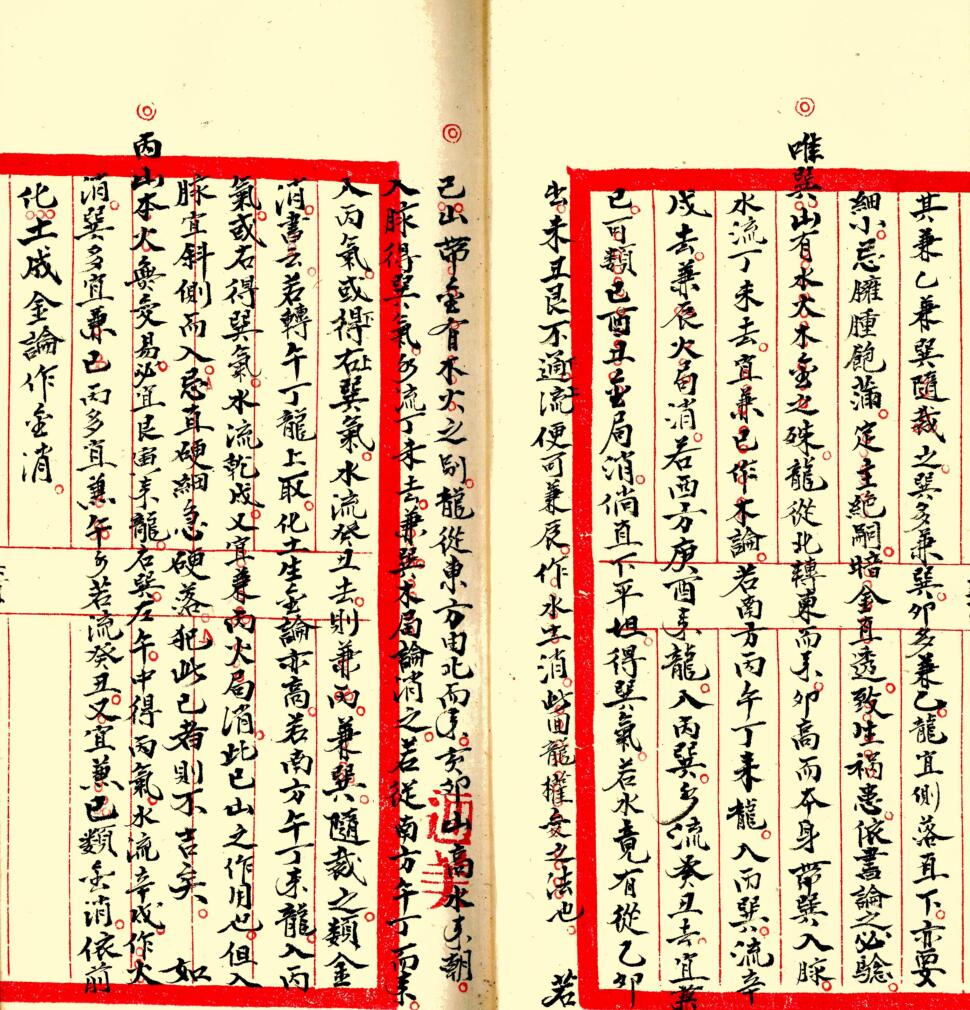 其兼乙兼巽隨裁之巽多兼巽卯多兼乙龍宜側落直下亦要
細小忌臃腫飽滿定主絕嗣暗金直透致生禍患依書論之必驗
唯巽山有水火木金之殊龍從北轉東而来卯高而夲身帶巽入脉
水流丁未去宜兼巳作木論若南方丙午丁来龍入丙巽流辛
戌去兼辰火局消若西方庚酉来龍入丙巽水流癸丑去宜兼
巳丙類巳酉丑金局消倘直下平坦得巽氣若水竟有從乙卯
出来丑艮不通流便可兼辰作水土消此回龍權變之法也 若
巳山帶金有木火之別龍從東方由北而来亥卯山高水来朝
入脉得巽氣水流丁未去兼巽木局論消之若從南方午丁而来
入丙氣或得右巽氣水流癸丑去則兼丙兼巽隨裁之類金
消書云若轉午丁龍上取化土生金論亦高若南方午丁来龍入丙
氣或右得巽氣水流乾戌又宜兼丙火局消此巳山之作用也但入
脉宜斜側而入忌直硬細急硬落犯此巳者則不吉矣 如
丙山本火無变易必宜艮寅来龍右巽左午中得丙氣水流辛戌作火
消巽多宜兼巳丙多宜兼午水若流癸丑又宜兼巳類金消依前
化土成金論作金消